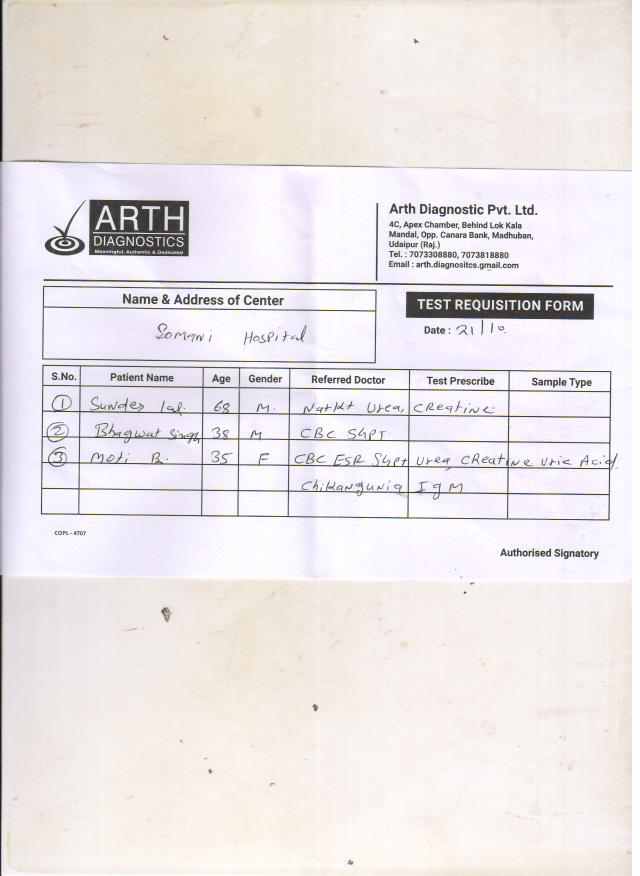 ARTH
DIAGNOSTICS
Meaningful, Authentic & Dedicated
Arth Diagnostic Pvt. Ltd.
4C, Apex Chamber, Behind Lok Kala
Mandal, Opp. Canara Bank, Madhuban,
Udaipur (Raj.)
Tel. : 7073308880, 7073818880
Email : arth.diagnositcs.gmail.com
Name & Address of Center
Somani Hospital
TEST REQUISITION FORM
Date : 21/10.
S.No. Patient Name Age Gender Referred Doctor Test Prescribe Sample Type
1 Sunder lal. 68 M. Na+k+ Urea, CReatine
2 Bhagwat Singh 38 M CBC SGPT.
3 Moti B. 35 F CBC ESR SGPT Urea, CReatine Uric Acid.
Chikangunia IgM
COPL - 4707
Authorised Signatory